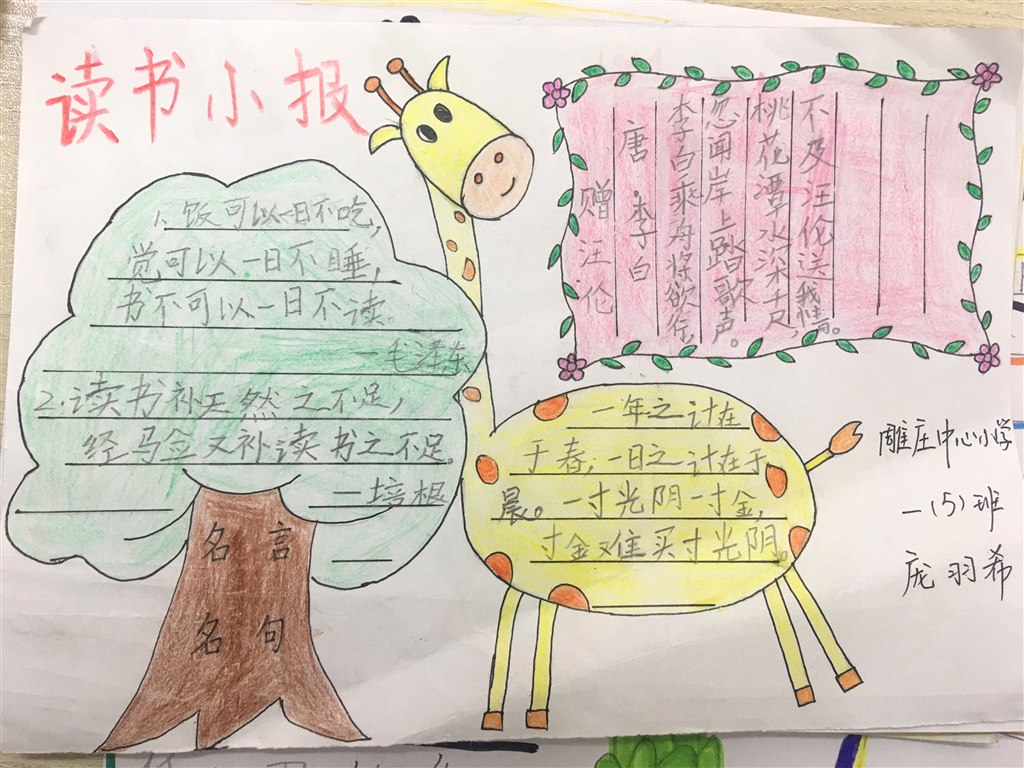 读书小报
1、饭可以一日不吃,
觉可以一日不睡,
书不可以一日不读。
—毛泽东
2.读书补天然之不足,
经验又补读书之不足。
—培根
名言
名句
赠汪伦
唐·李白
李白乘舟将欲行,
忽闻岸上踏歌声。
桃花潭水深千尺,
不及汪伦送我情。
一年之计在
于春,一日之计在于
晨。一寸光阴一寸金,
寸金难买寸光阴。
雕庄中心小学
一(5)班
庞羽希